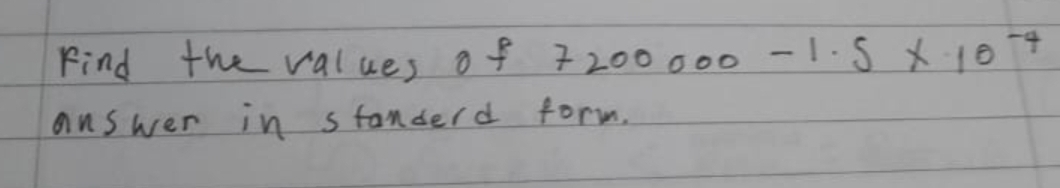 Find the values of 7200000 - 1.5 X 10^-4
answer in standerd form.